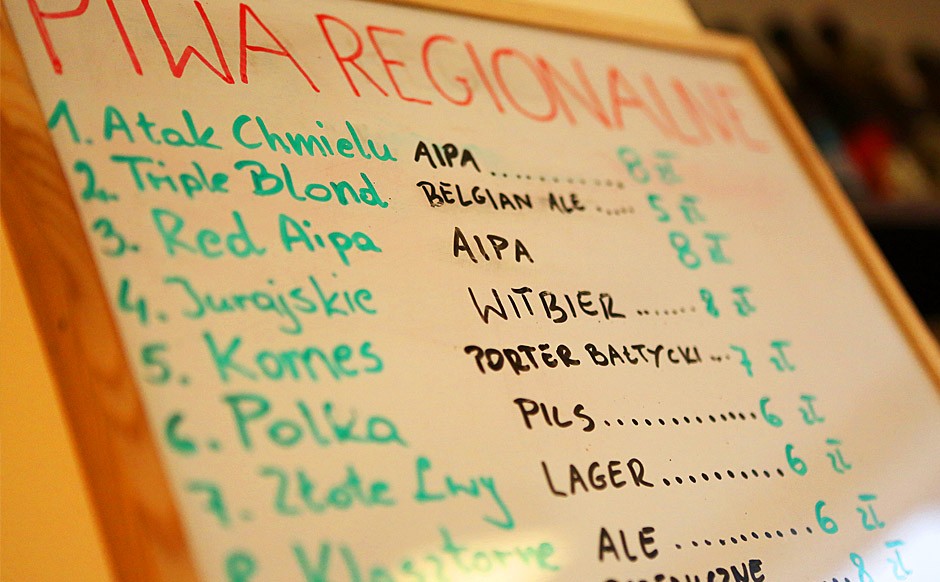 PIWA REGIONALNE
1. Atak Chmielu AIPA............ 8 zł
2. Triple Blond BELGIAN ALE ..... 5 zł
3. Red Aipa AIPA 8 zł
4. Jurajskie WITBIER ....... 8 zł
5. Komes PORTER BAŁTYCKI... 7 zł
6. Polka PILS............. 6 zł
7. Złote Lwy LAGER.......... 6 zł
8. Klasztorne ALE ........... 6 zł
8 zł